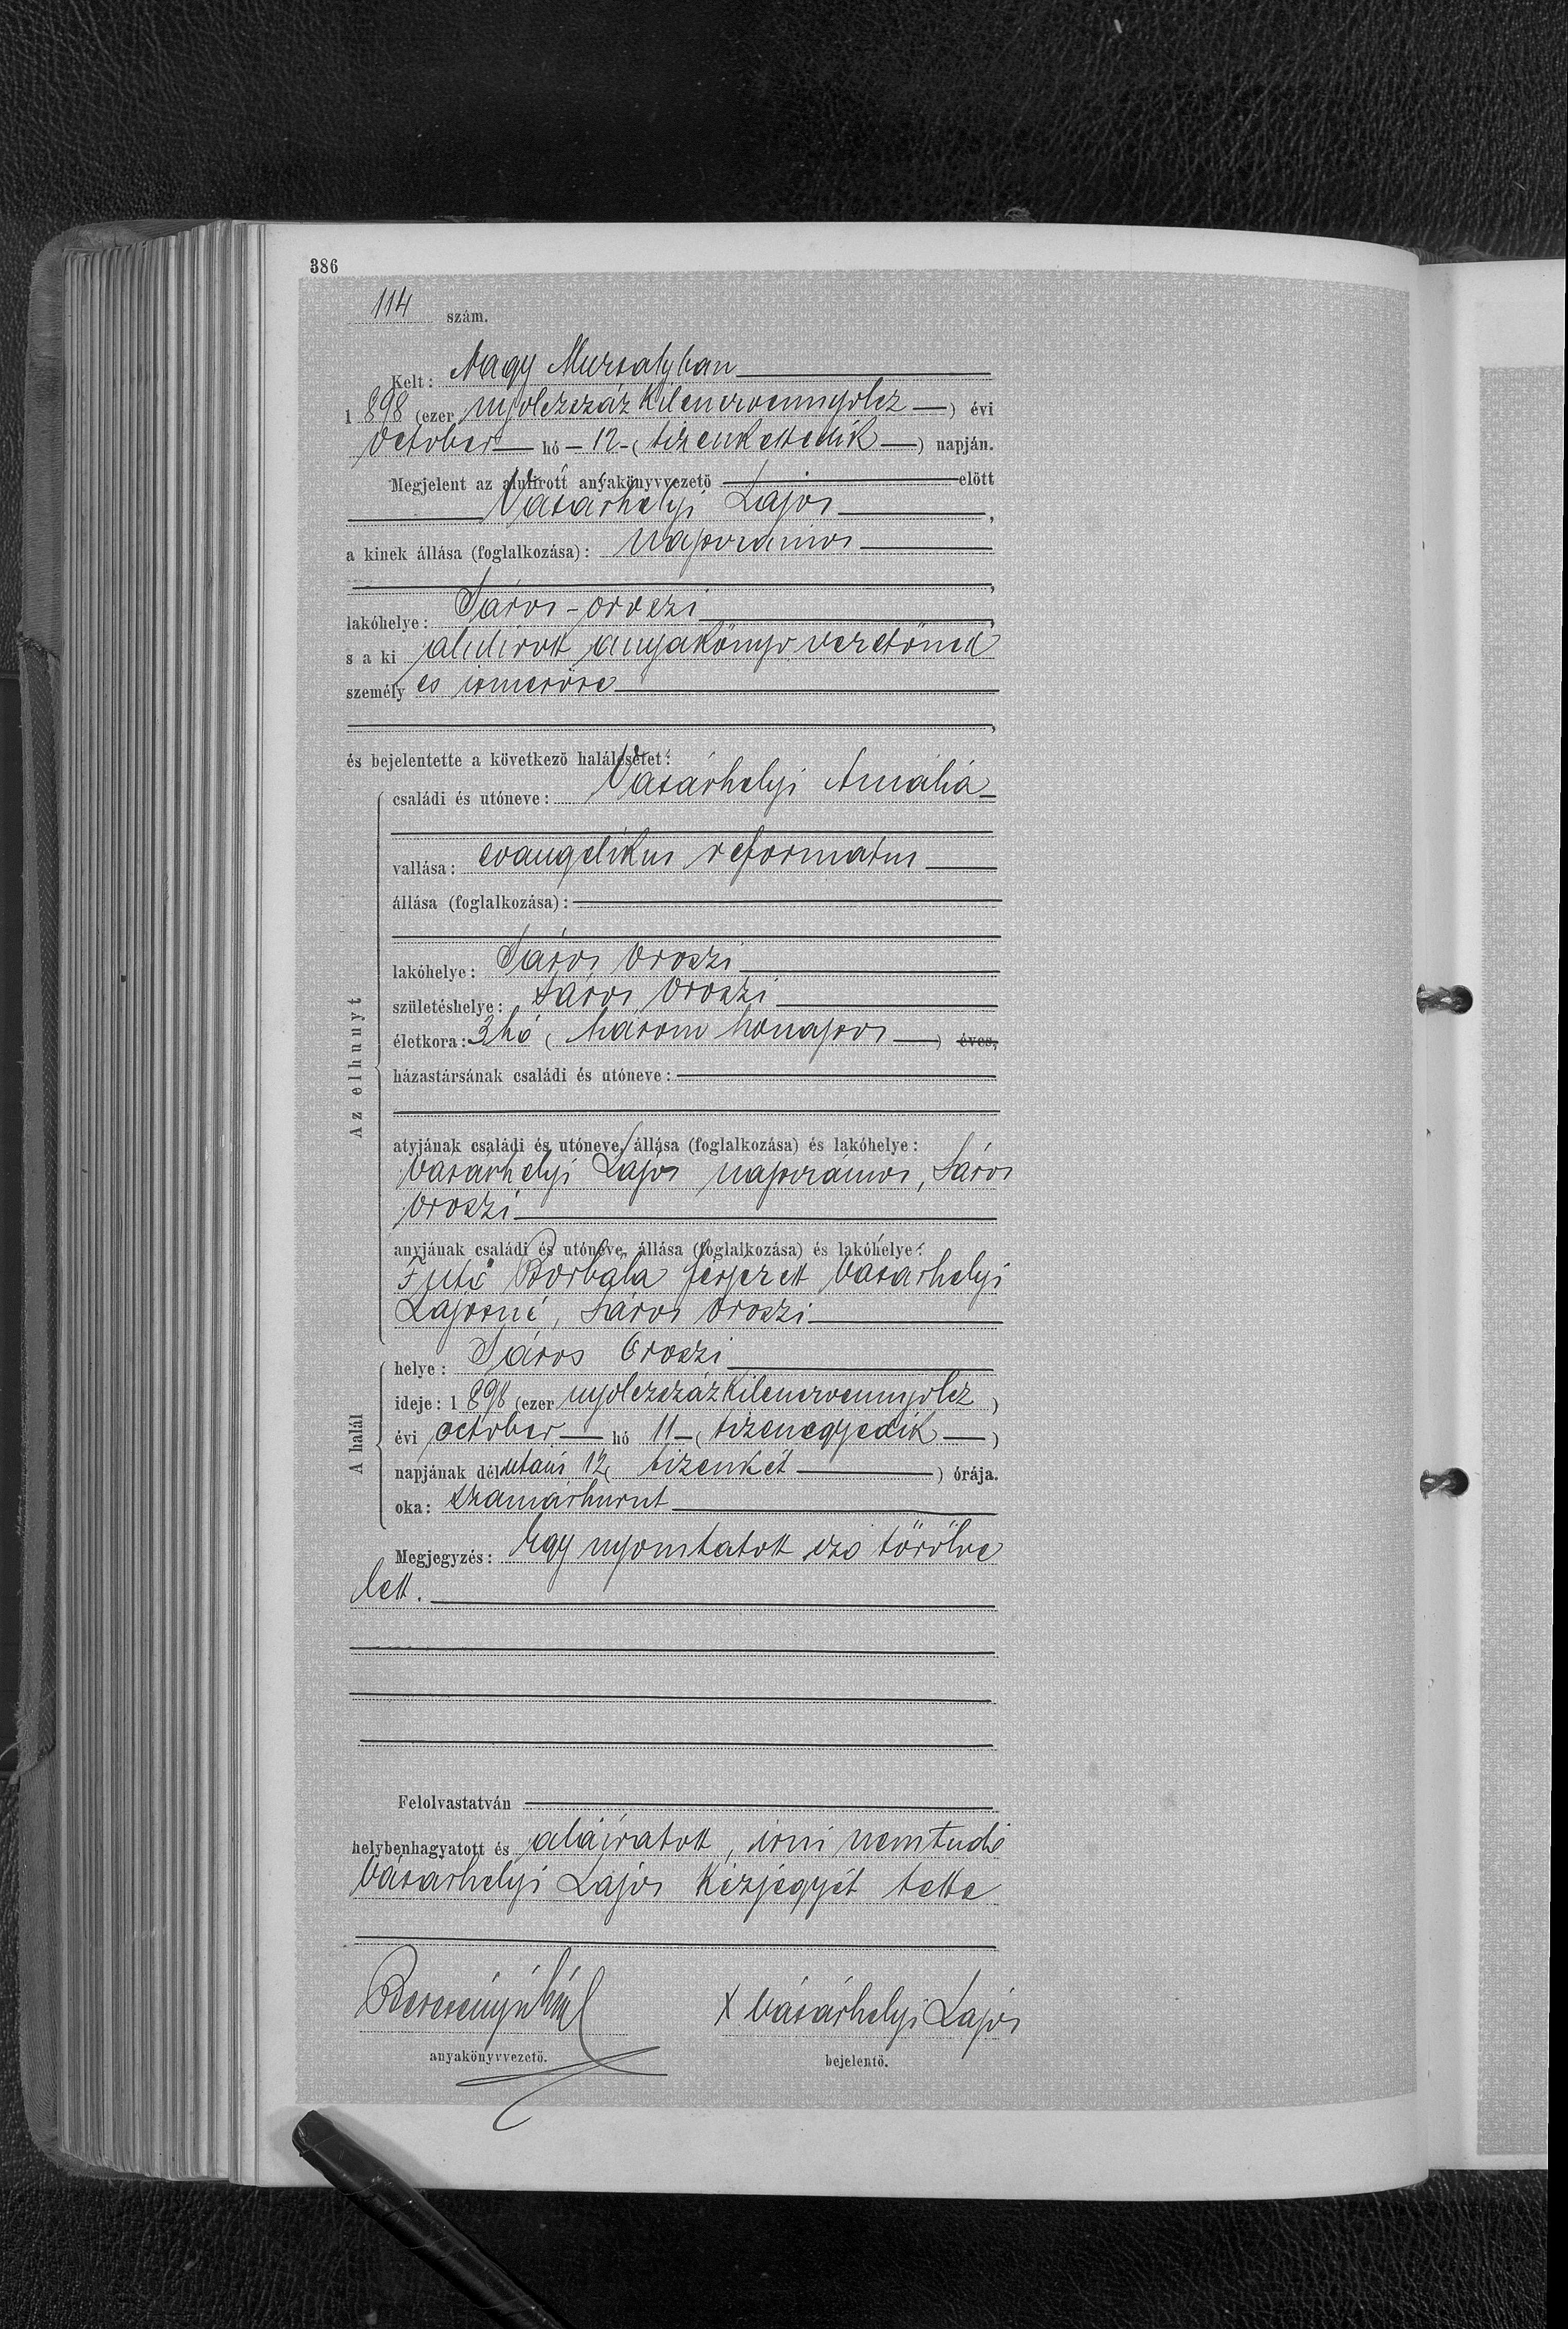 386
114 szám.
Kelt: Nagy Muzsalyban
1898 (ezer nyolczszáz kilenczvennyolcz) évi
October hó 12 (tizenkettedik) napján.
Megjelent az alulirott anyakönyvvezető előtt
Vásárhelyi Lajos,
a kinek állása (foglalkozása): napszámos
lakóhelye: Sáros-oroszi
s a ki alulirott anyakönyvvezetőnek
személyes ismerőse
és bejelentette a következő halálesetet:
Az elhunyt
családi és utóneve: Vásárhelyi Amália
vallása: evangelikus reformatus
állása (foglalkozása):
lakóhelye: Sáros Oroszi
születéshelye: Sáros Oroszi
életkora: 3 hó (három hónapos) éves,
házastársának családi és utóneve:
atyjának családi és utóneve, állása (foglalkozása) és lakóhelye:
Vásárhelyi Lajos napszámos, Sáros
Oroszi
anyjának családi és utóneve, állása (foglalkozása) és lakóhelye:
Futó Borbála férjezett Vásárhelyi
Lajosné, Sáros Oroszi
A halál
helye: Sáros Oroszi
ideje: 1898 (ezer nyolczszázkilenczvennyolcz)
évi october hó 11 (tizenegyedik)
napjának délutáni 12 (tizenkét) órája.
oka: szamárhurut
Megjegyzés: Egy nyomtatott szó törölve
lett.
Felolvastatván
helybenhagyatott és aláiratott, irni nemtudó
Vásárhelyi Lajos kézjegyét tette
X Vásárhelyi Lajos
anyakönyvvezető. bejelentő.